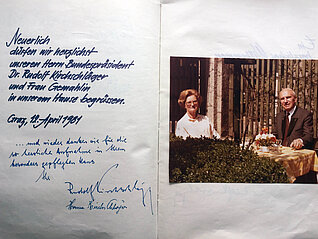 Neuerlich
dürfen wir herzlichst
unseren Herrn Bundespräsident
Dr. Rudolf Kirchschläger
und Frau Gemahlin
in unserem Hause begrüssen.
Graz, 28. April 1981
... und wieder danken wir für die
so herzliche Aufnahme in Ihrem
besonders gepflegten Haus
Ihr
Rudolf Kirchschläger
Herma Kirchschläger